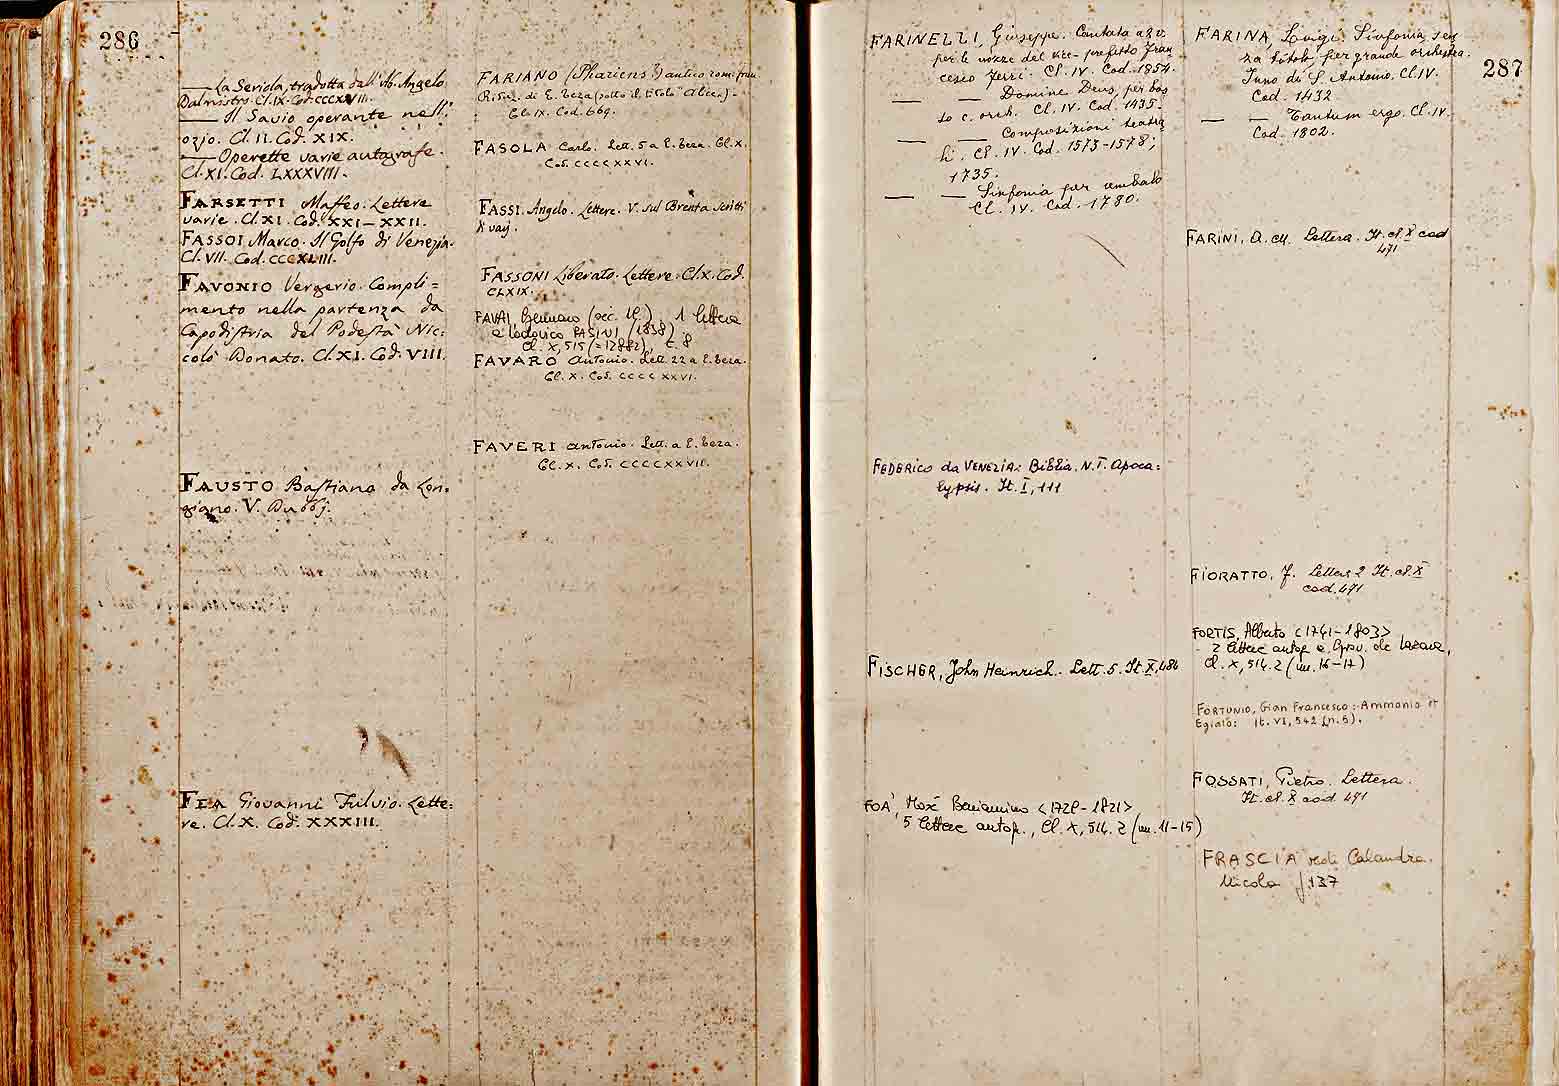 286
— La Seriola, tradotta dall'Ab. Angelo
Dalmistro. Cl. IX. Cod. CCCXXVIII.
— Il Savio operante nell'
ozio. Cl. II. Cod. XIX.
— Operette varie autografe.
Cl. XI. Cod. LXXXVIII.
FARSETTI Maffeo. Lettere
varie. Cl. XI. Cod. XXI–XXII.
FASSOI Marco. Il Golfo di Venezia.
Cl. VII. Cod. CCCXLIII.
FAVONIO Vergerio. Compli=
mento nella partenza da
Capodistria del Podestà Nic:
colò Donato. Cl. XI. Cod. VIII.
FAUSTO Bastiano da Lon:
giano. V. Dubbj.
FEA Giovanni Fulvio. Lette:
re. Cl. X. Cod. XXXIII.
FARIANO (Phariens?) antico rom. fran.
Riduz. di E. Teza (sotto il titolo "Alicen) -
Cl. IX. Cod. 669.
FASOLA Carlo. Lett. 5 a E. Teza. Cl. X.
Cod. CCCCXXVI.
FASSI Angelo. Lettere. V. sul Brenta scritti
di varj.
FASSONI Liberato. Lettere. Cl. X. Cod.
CLXIX.
FAVAI, Gennaro 1 lettera
a Lodovico PASINI (1838)
Cl. X, 515 (=12882), t. 8
FAVARO Antonio. Lett. 22 a E. Teza.
Cl. X. Cod. CCCCXXVI.
FAVERI Antonio. Lett. a E. Teza.
Cl. X. Cod. CCCCXXVII.
FARINELLI, Giuseppe. Cantata a 3 v.
per le nozze del vice-prefetto Fran
cesco Zerri. Cl. IV. Cod. 1854.
— — Domine Deus, per bas
so c. orch. Cl. IV. Cod. 1435.
— — Composizioni teatra
li. Cl. IV. Cod. 1573-1578;
1735.
— — Sinfonia per cembalo
Cl. IV. Cod. 1780.
FEDERICO da VENEZIA: Biblia. N.T. Apoca:
lypsis. It. I, 111
FISCHER, John Heinrich. Lett. 5. It. X, 486
FOA', Mosè Beniamino <1729-1821>
5 lettere autogr., Cl. X, 514. 2 (nn. 11-15)
287
FARINA, Luigi. Sinfonia sen
za titolo, per grande orchestra.
Inno di S. Antonio. Cl. IV.
Cod. 1432
— — Tantum ergo. Cl. IV.
Cod. 1802.
FARINI, D. M. Lettera. It. cl. X cod
471
FIORATTO, F. Lettere 2 It. cl. X
cod. 471
FORTIS, Alberto <1741-1803>
- 2 lettere autogr. a Giov. de Lazara,
Cl. X, 514. 2 (nn. 16-17)
FORTUNIO, Gian Francesco: Ammonio et
Egialo: It. VI, 542 (n. 5).
FOSSATI, Pietro. Lettera.
It. cl. X cod 471
FRASCIA vedi Calandra
Nicola f. 137